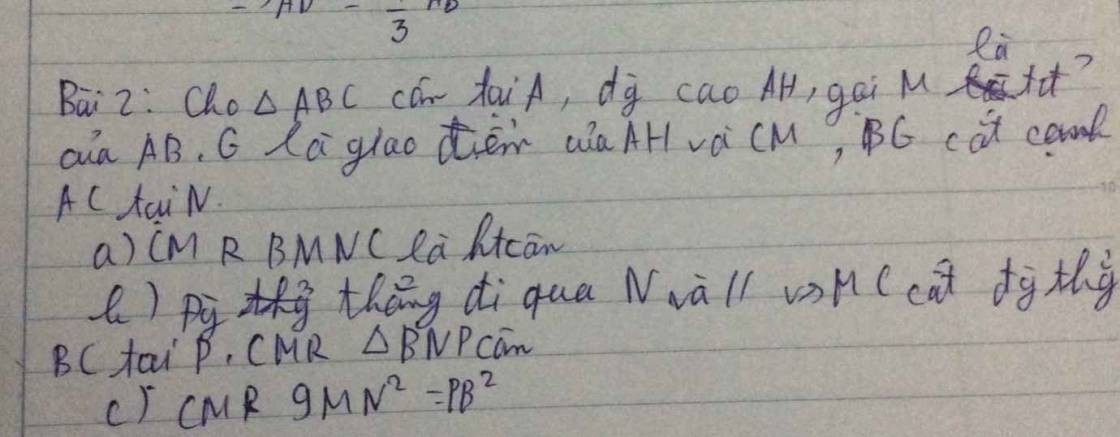 = > AD = 1/3 AB
Bài 2: Cho △ ABC cân tại A, đg cao AH, gọi M là tđ
của AB. G là giao điểm của AH và CM, BG cắt cạnh
AC tại N.
a) CM R BMNC là htcân
b) Đg thẳng đi qua N và // vs MC cắt đg thg
BC tại P. CMR △ BNP cân
c) CMR 9MN² = PB²